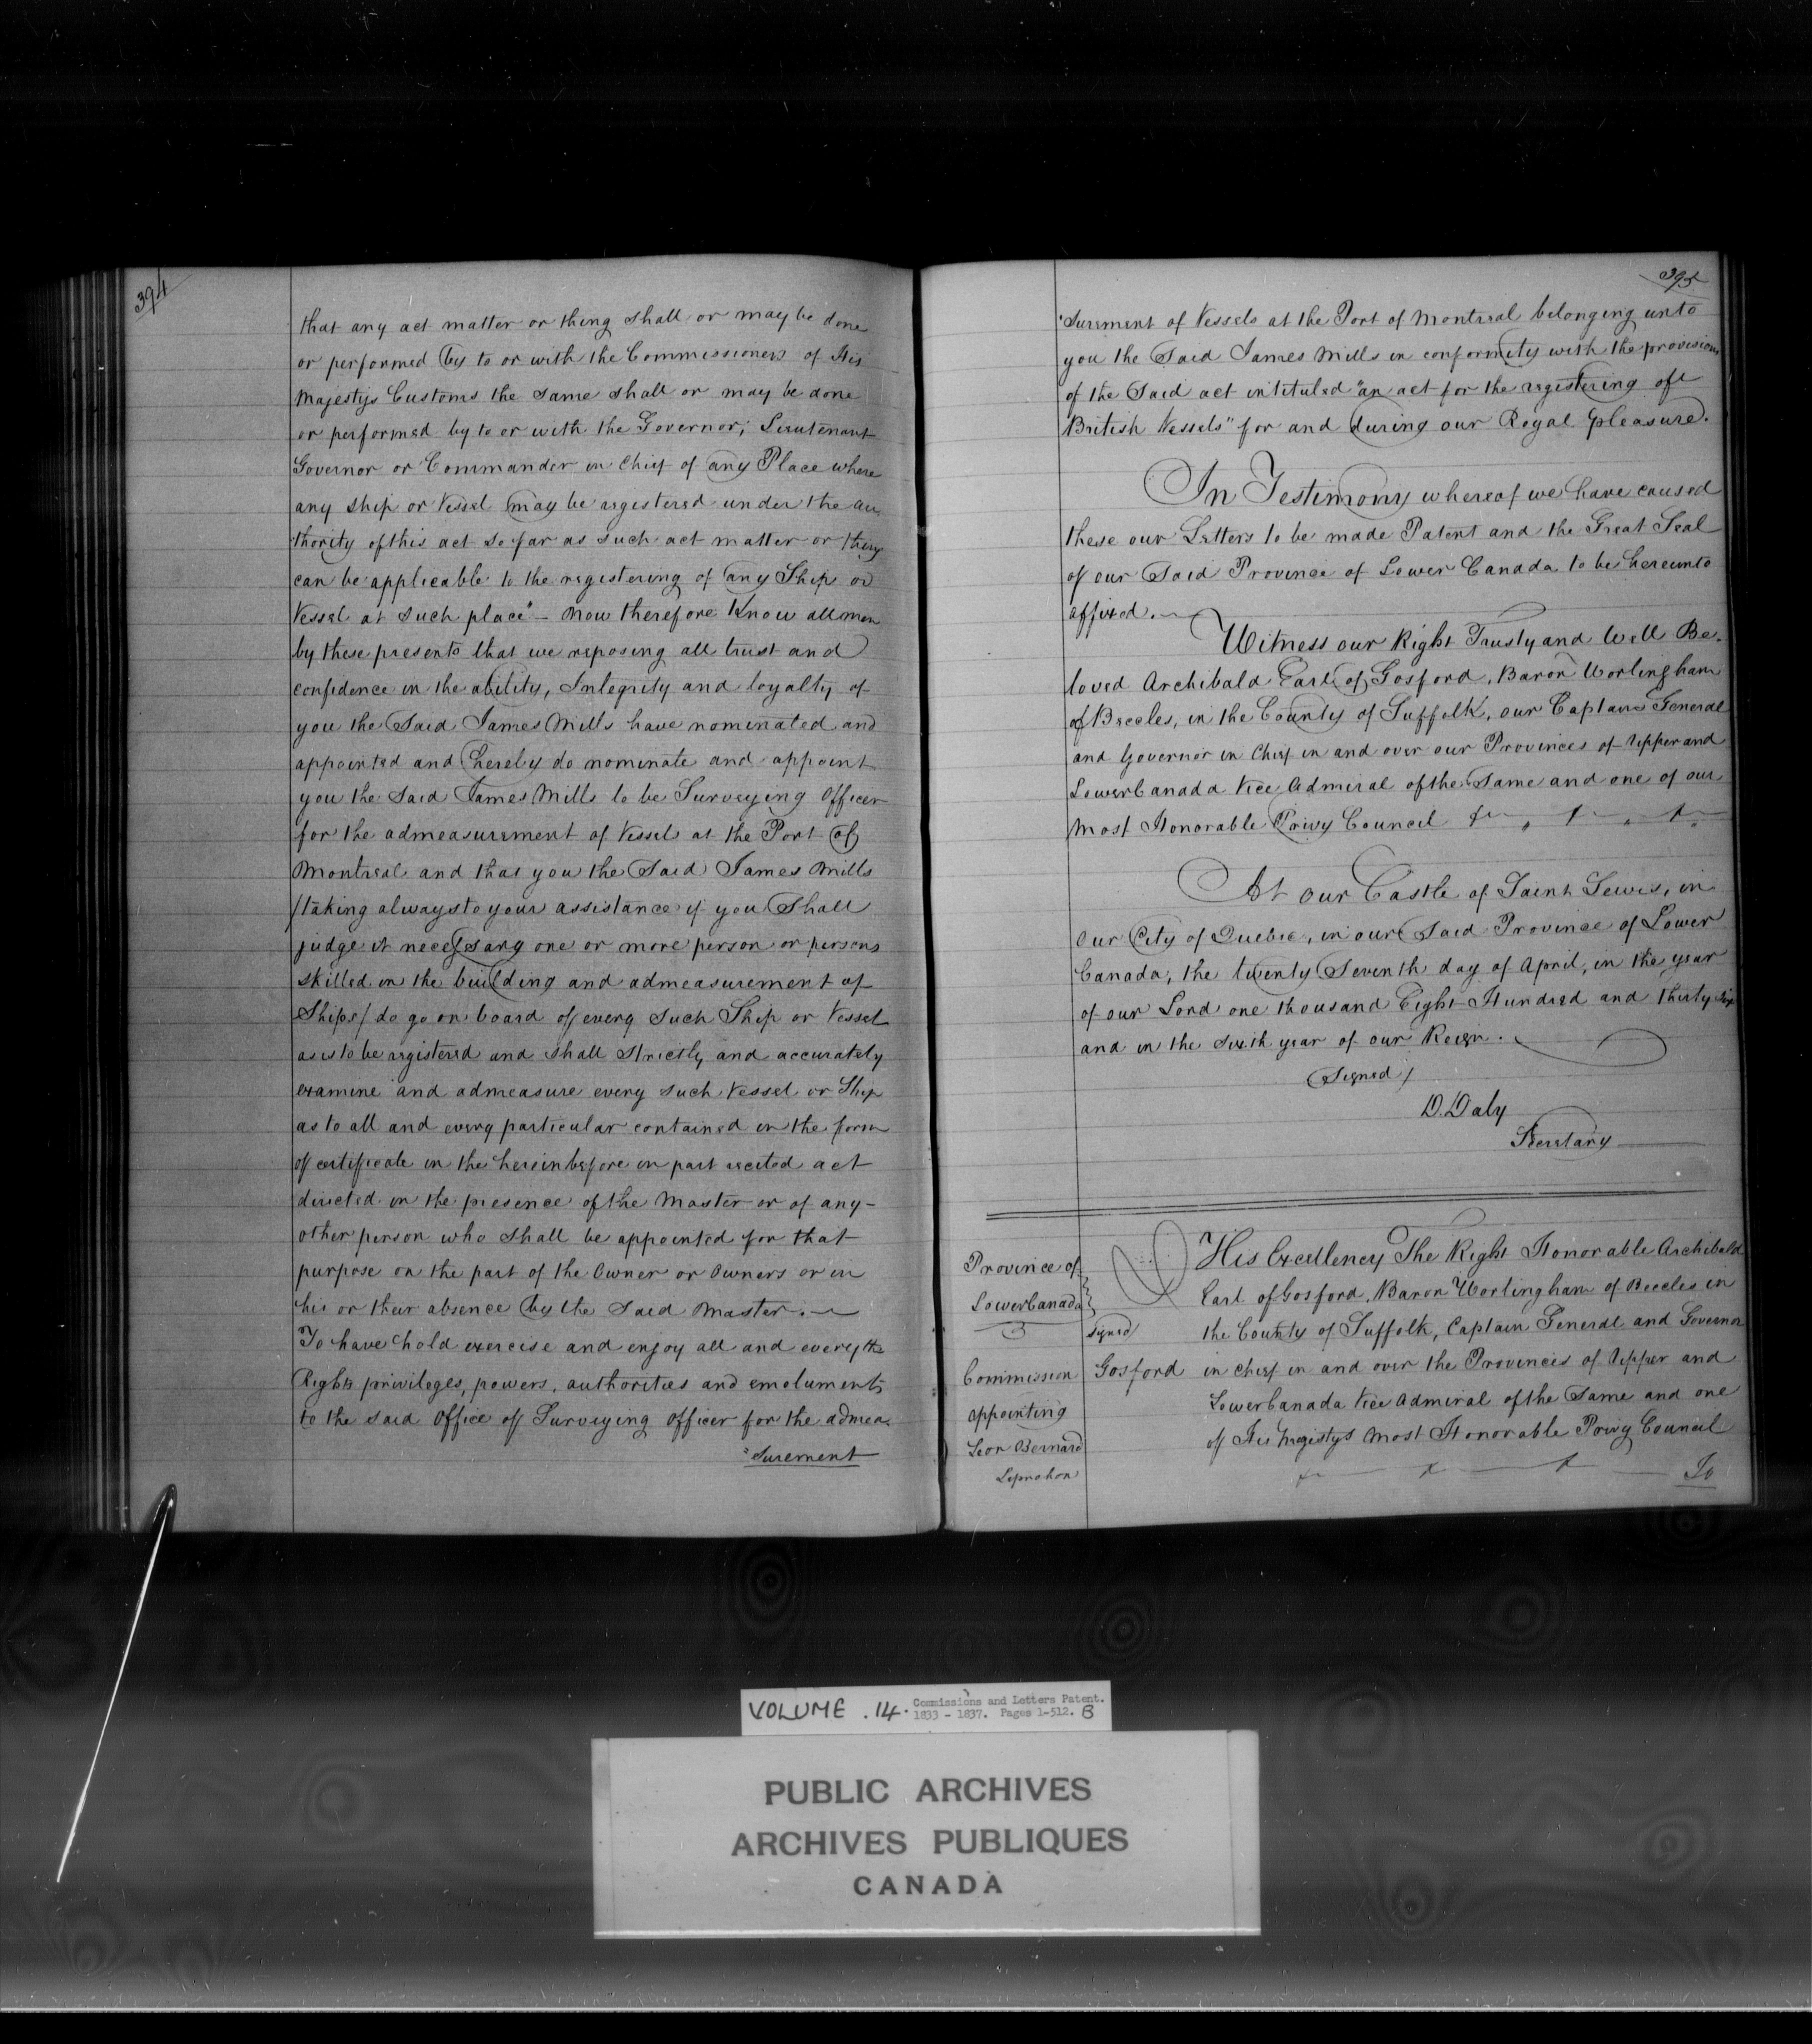 394
that any act matter or thing shall or may be done
or performed by to or with the Commissioners of His
Majestys Customs the same shall or may be done
or performed by to or with the Governor, Lieutenant
Governor or Commander in Chief of any Place where
any ship or Vessel may be registered under the au
thority of this act so far as such act matter or thing
can be applicable to the registering of any Ship or
Vessel at such place" — Now therefore Know all men
by these presents that we reposing all trust and
confidence in the ability, Integrity and loyalty of
you the Said James Mills have nominated and
appointed and hereby do nominate and appoint
you the Said James Mills to be Surveying Officer
for the admeasurement of Vessels at the Port of
Montreal and that you the Said James Mills
/taking always to your assistance if you Shall
judge it necessary one or more person or persons
skilled in the building and admeasurement of
Ships/ do go on board of every Such Ship or Vessel
as is to be registered and shall Strictly and accurately
examine and admeasure every such Vessel or Ship
as to all and every particular contained in the form
of certificate in the herein before in part recited act
directed in the presence of the Master or of any-
other person who shall be appointed for that
purpose on the part of the Owner or Owners or in
his or their absence by the Said Master. —
To have hold exercise and enjoy all and every the
Rights privileges, powers, authorities and emoluments
to the said Office of Surveying Officer for the admea.
"surement
395
"surement of Vessels at the Port of Montreal belonging unto
you the Said James Mills in conformity with the provisions
of the Said act intituled "an act for the registering of
British Vessels" for and during our Royal pleasure.
In Testimony whereof we have caused
these our Letters to be made Patent and the Great Seal
of our Said Province of Lower Canada to be hereunto
affixed. —
Witness our Right Trusty and Well Be-
loved Archibald Earl of Gosford, Baron Worlingham
of Beccles, in the County of Suffolk, our Captain General
and Governor in Chief in and over our Provinces of Upper and
Lower Canada Vice Admiral of the Same and one of our
Most Honorable Privy Council
At our Castle of Saint Lewis, in
our City of Quebec, in our Said Province of Lower
Canada, the twenty Seventh day of April, in the year
of our Lord one thousand Eight Hundred and thirty Six
and in the Sixth year of our Reign.
(Signed /
D. Daly
Secretary
Province of
Lower Canada
Commission
appointing
Leon Bernard
Leprohon
signed/
Gosford
His Excellency The Right Honorable Archibald
Earl of Gosford, Baron Worlingham of Beccles in
the County of Suffolk, Captain General and Governor
in Chief in and over the Provinces of Upper and
Lower Canada Vice Admiral of the Same and one
of His Majestys Most Honorable Privy Council
To
VOLUME . 14. Commissions and Letters Patent.
1833 - 1837. Pages 1-512. B
PUBLIC ARCHIVES
ARCHIVES PUBLIQUES
CANADA